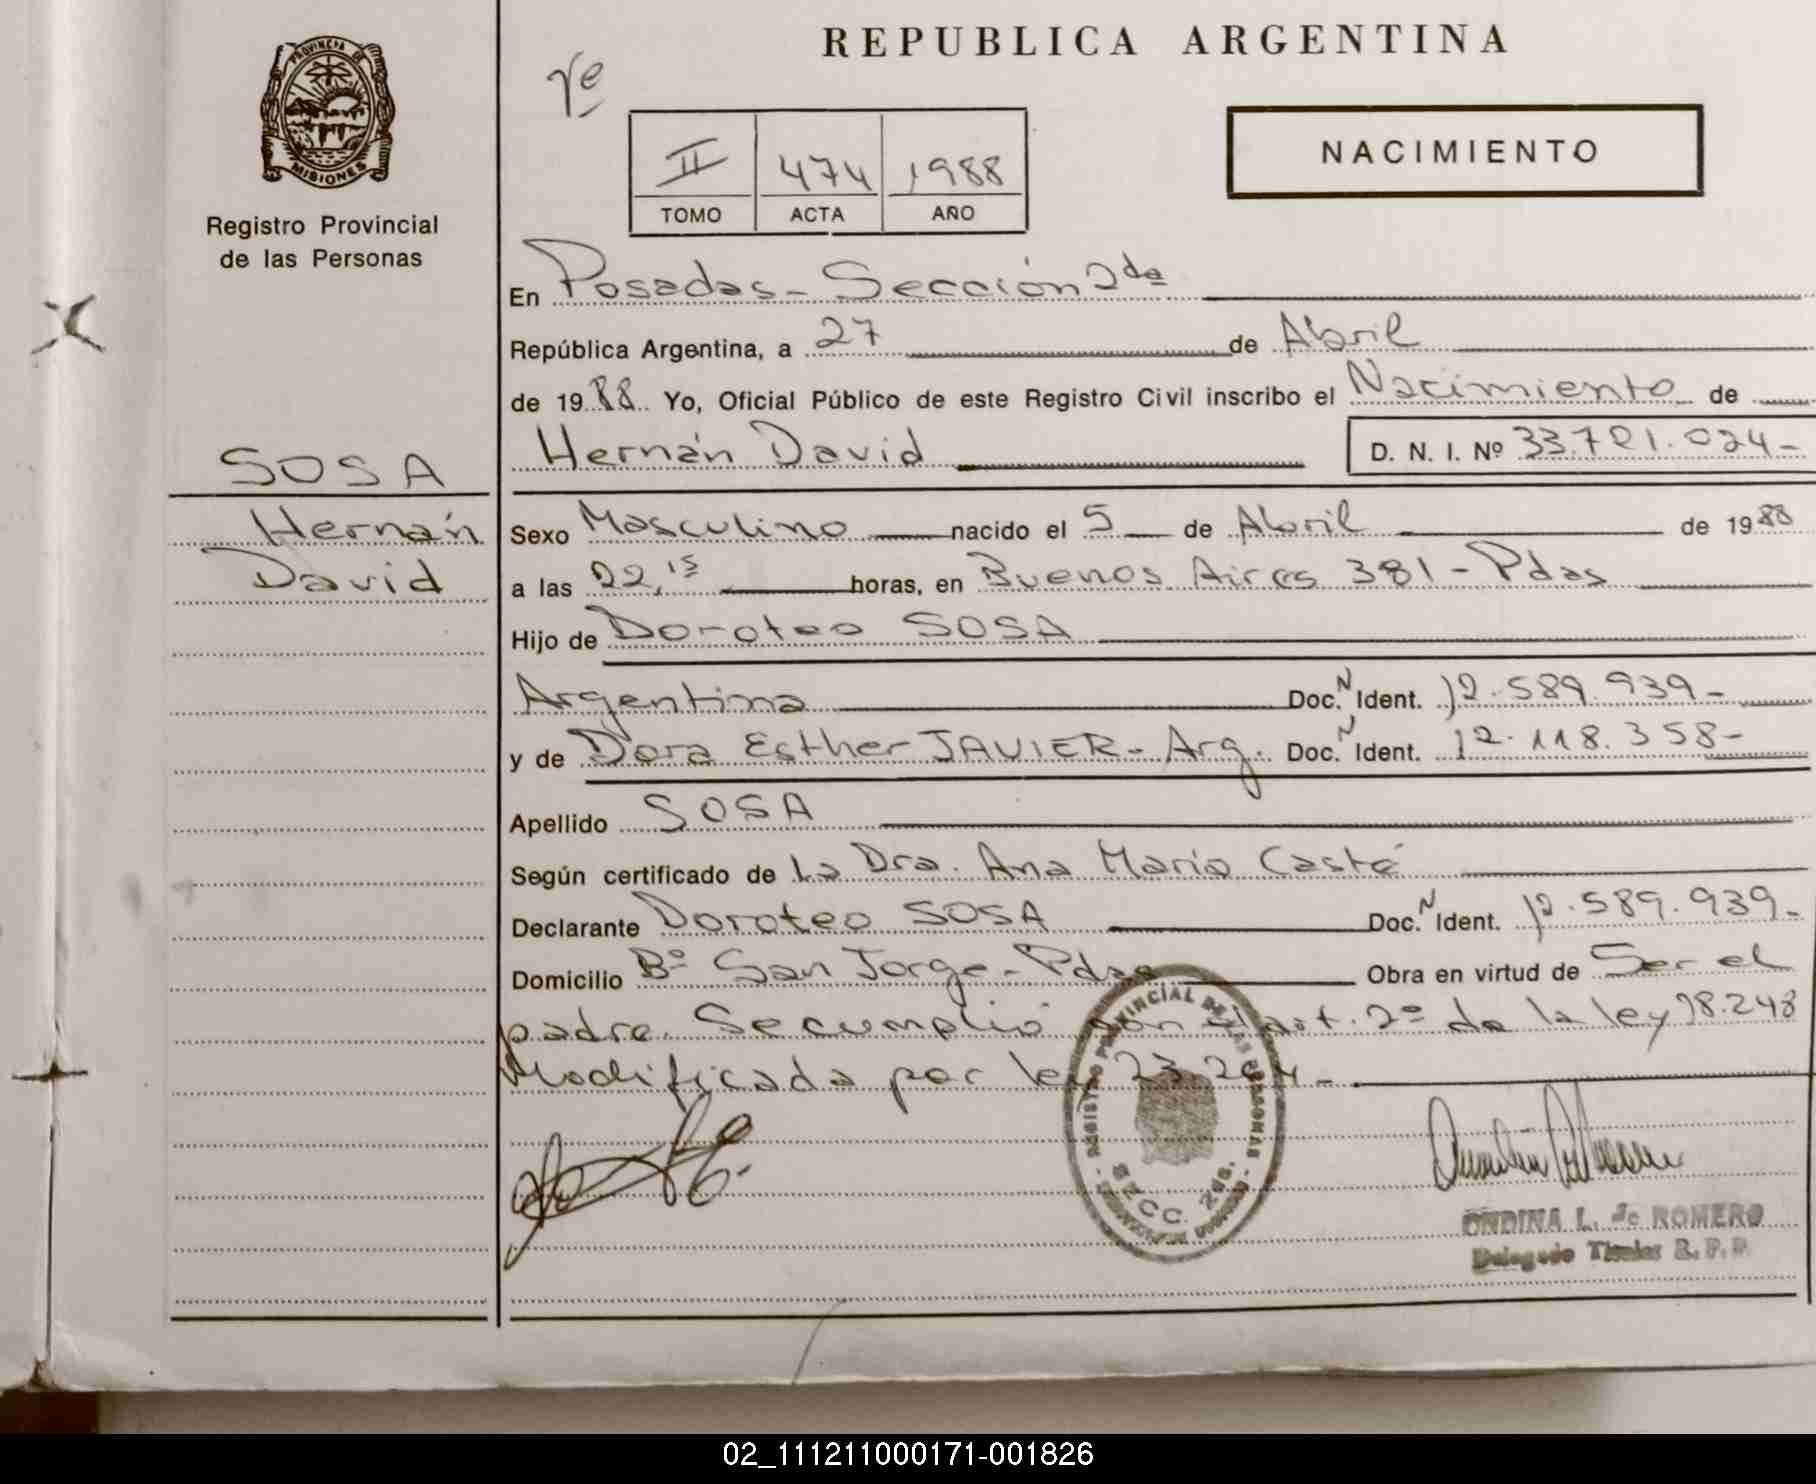 REPUBLICA ARGENTINA
PROVINCIA DE
MISIONES
Registro Provincial
de las Personas
II 474 1988
TOMO ACTA AÑO
NACIMIENTO
En Posadas - Sección 2da
República Argentina, a 27 de Abril
de 1988 Yo, Oficial Público de este Registro Civil inscribo el Nacimiento de
SOSA
Hernán David D. N. I. Nº
Hernán
David
Sexo Masculino nacido el 5 de Abril de 1988
a las 22,15 horas, en Buenos Aires 381 - Pdas
Hijo de Doroteo SOSA
Argentina Doc. N Ident. 12.589.939-
y de Dora Esther JAVIER - Arg. Doc. N Ident. 12.118.358-
Apellido SOSA
Según certificado de La Dra. Ana María Casté
Declarante Doroteo SOSA Doc. N Ident. 12.589.939-
Domicilio Bº San Jorge - Pdas Obra en virtud de Ser el
padre. Se cumplió con el art. 2º de la ley 18.248
Modificada por ley 23.264 -
REGISTRO PROVINCIAL DE LAS PERSONAS
SECC. 2da.
ONDINA L. de ROMERO
Delegado Titular R. P. P.
02_111211000171-001826